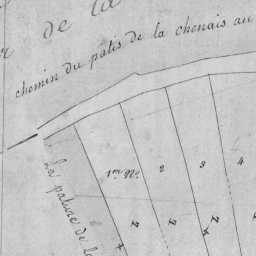 de la
chemin du patis de la chenais au
1er No. 2 3 4
La pature de la